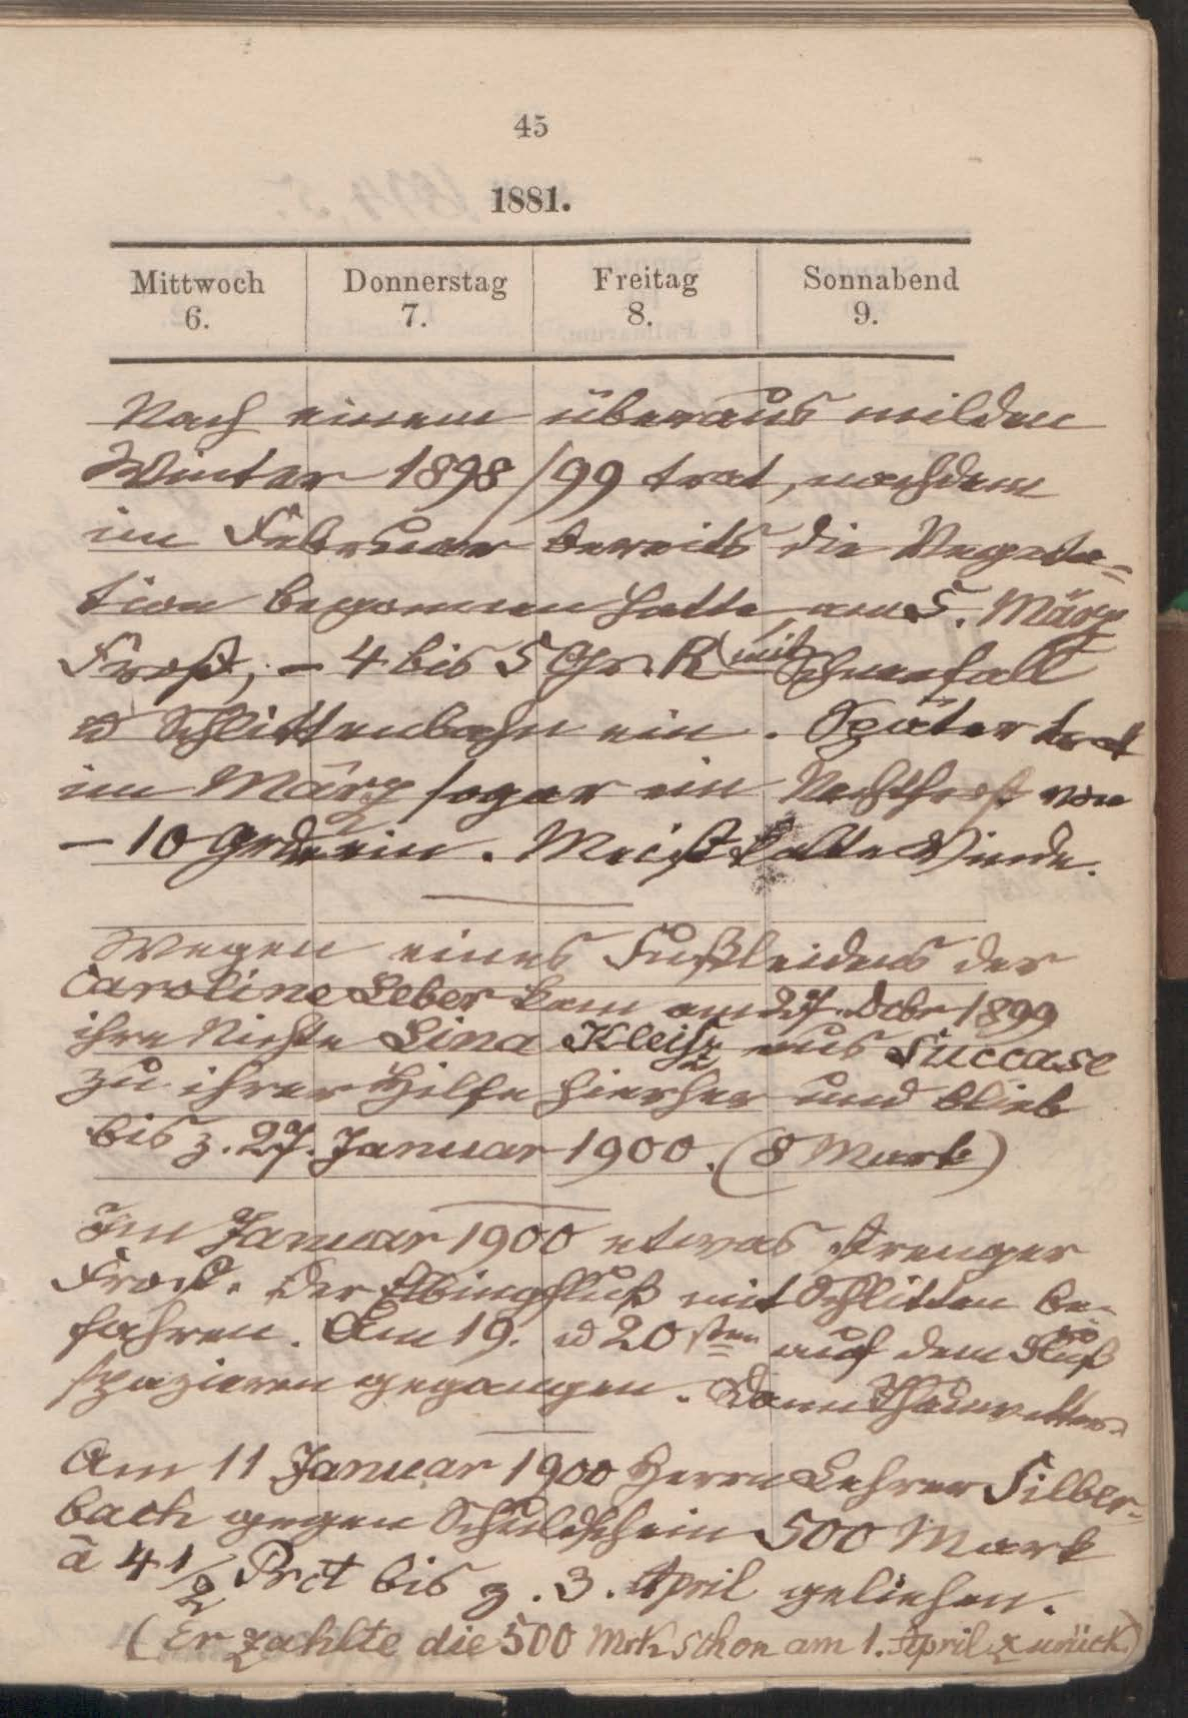 45
1881.
Mittwoch Donnerstag Freitag Sonnabend
6. 7. 8. 9.
Nach einem überaus milden
Winter 1898/99 trat, nachdem
im Februar bereits die Vegeta-
tion begonnen hatte, am 5. März
Frost, – 4 bis 5 Gr. R mit Schneefall
u Schlittenbahn ein. Später trat
im März sogar ein Nachtfrost von
– 10 Grad ein. Meist kalte Winde.
Wegen eines Fußleidens der
Caroline Leber kam am 27. Dcbr 1899
ihre Nichte Lina Kleiss aus Succase
zu ihrer Hilfe hierher und blieb
bis z. 27. Januar 1900. (8 Mark)
Im Januar 1900 etwas strenger
Frost. Der Elbingfluß mit Schlitten be-
fahren. Am 19. u 20sten auf dem Fluß
spazieren gegangen. Dann Thauwetter.
Am 11 Januar 1900 Herrn Lehrer Silber-
bach gegen Schuldschein 500 Mark
à 4 1/2 Prct bis z. 3. April geliehen.
(Er zahlte die 500 Mrk schon am 1. April zurück)